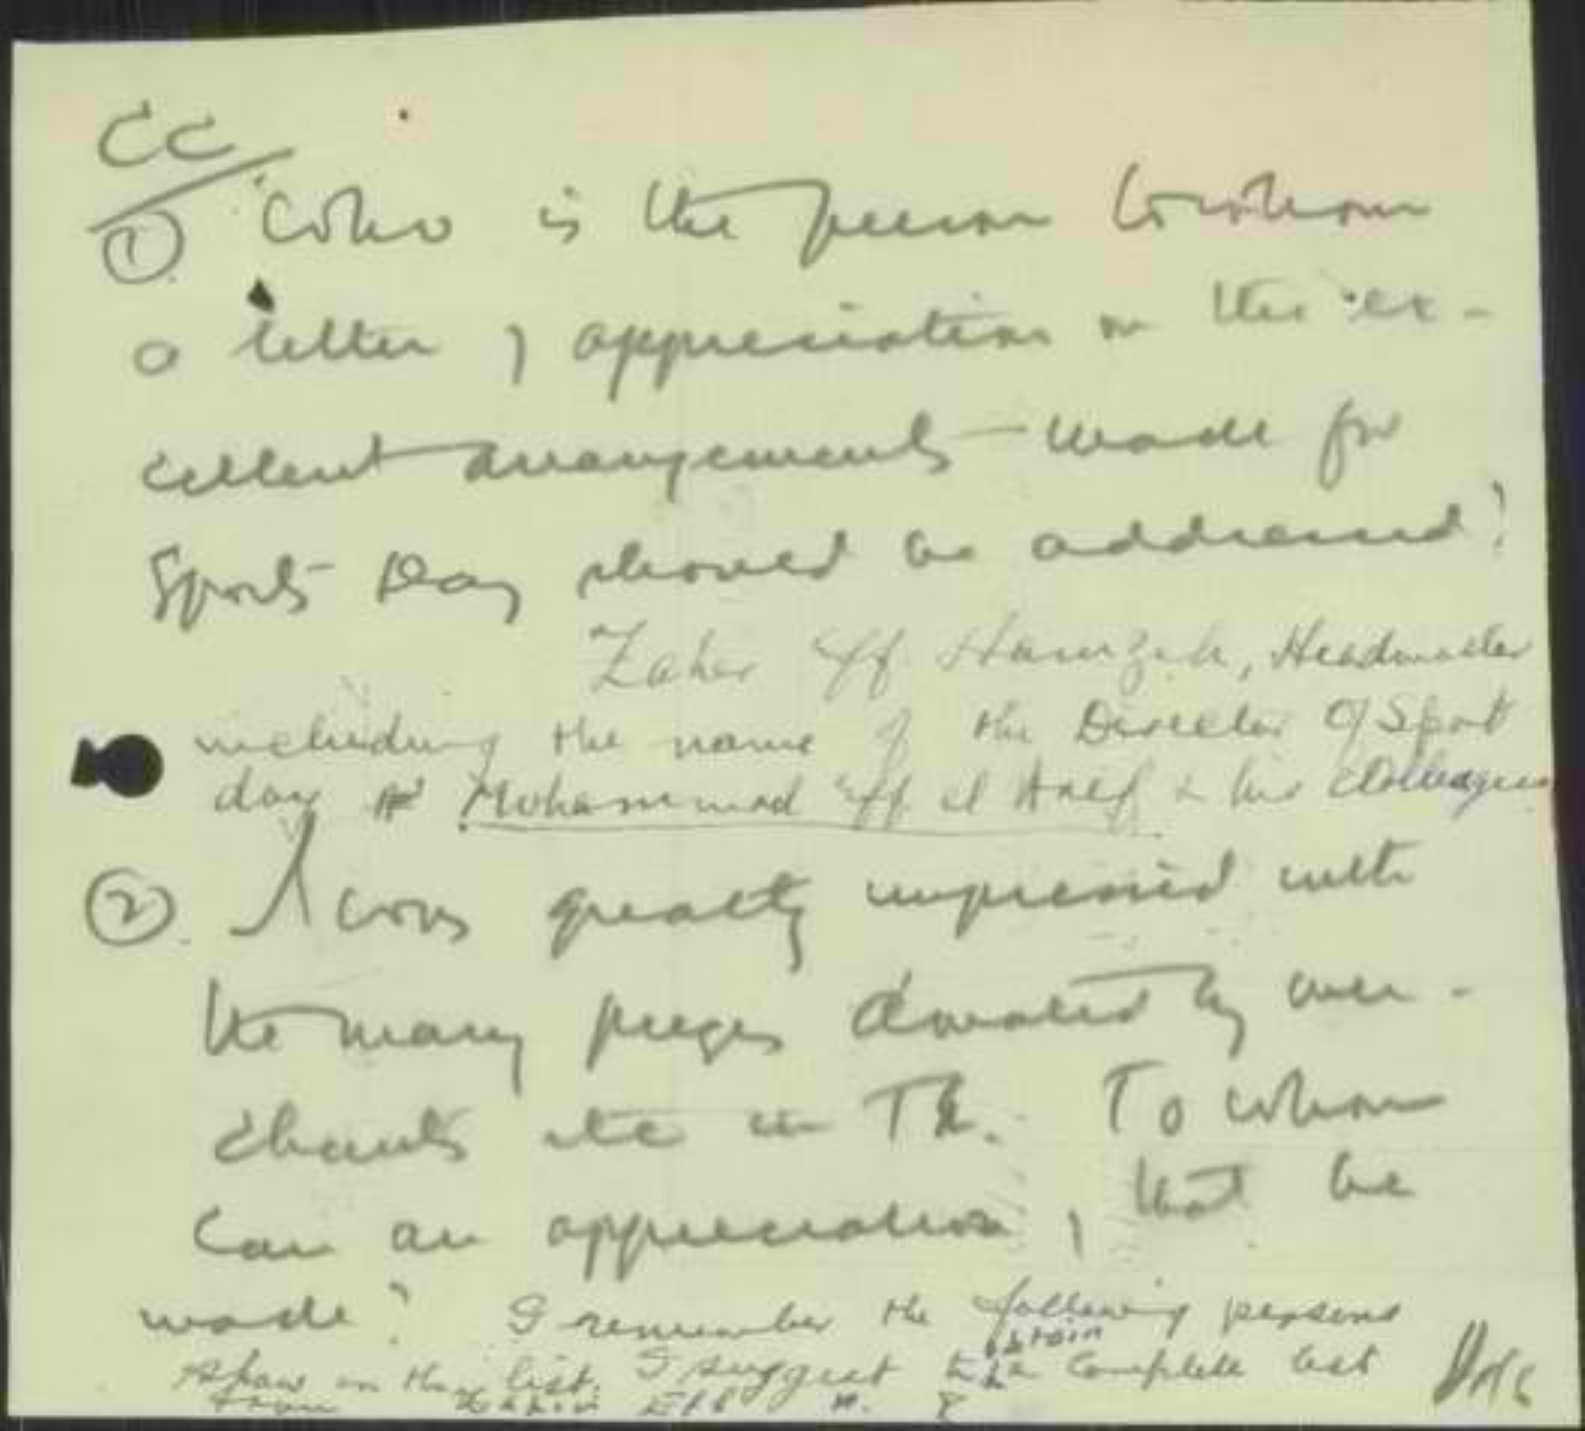 CC
① Who is the person to whom
a letter of appreciation on the ex-
cellent arrangements made for
Sports Day should be addressed?
Zaher Eff. Hamzeh, Headmaster
including the name of the Director of Sport
day Mohammad Eff. el Half & his Colleagues
② I was greatly impressed with
the many prizes donated by mer-
chants etc in TK. To whom
can an appreciation, that be
made? I remember the following persons
obtain
in the list. I suggest complete list
from Eff